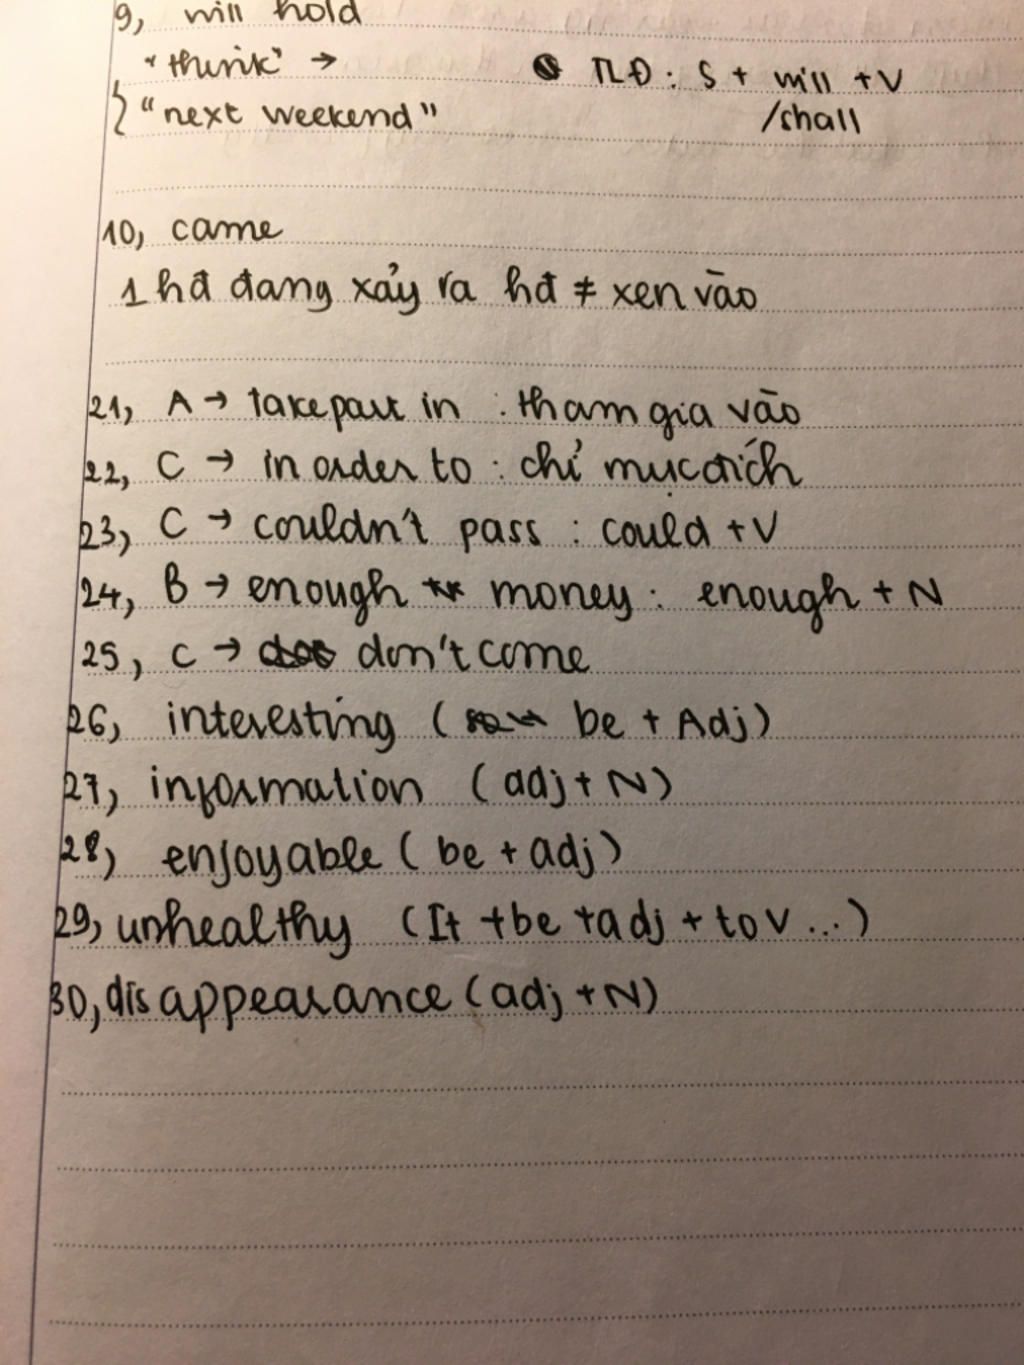 9, will hold
"think" → TLĐ: S + will + V
"next weekend" /shall
10, came
1 hđ đang xảy ra hđ ≠ xen vào
21, A → take part in : tham gia vào
22, C → in order to : chỉ mục đích
23, C → couldn't pass : could + V
24, B → enough money : enough + N
25, C → don't come
26, interesting ( be + Adj)
27, information (adj + N)
28, enjoyable ( be + adj)
29, unhealthy (It + be + adj + to V ...)
30, disappearance (adj + N)